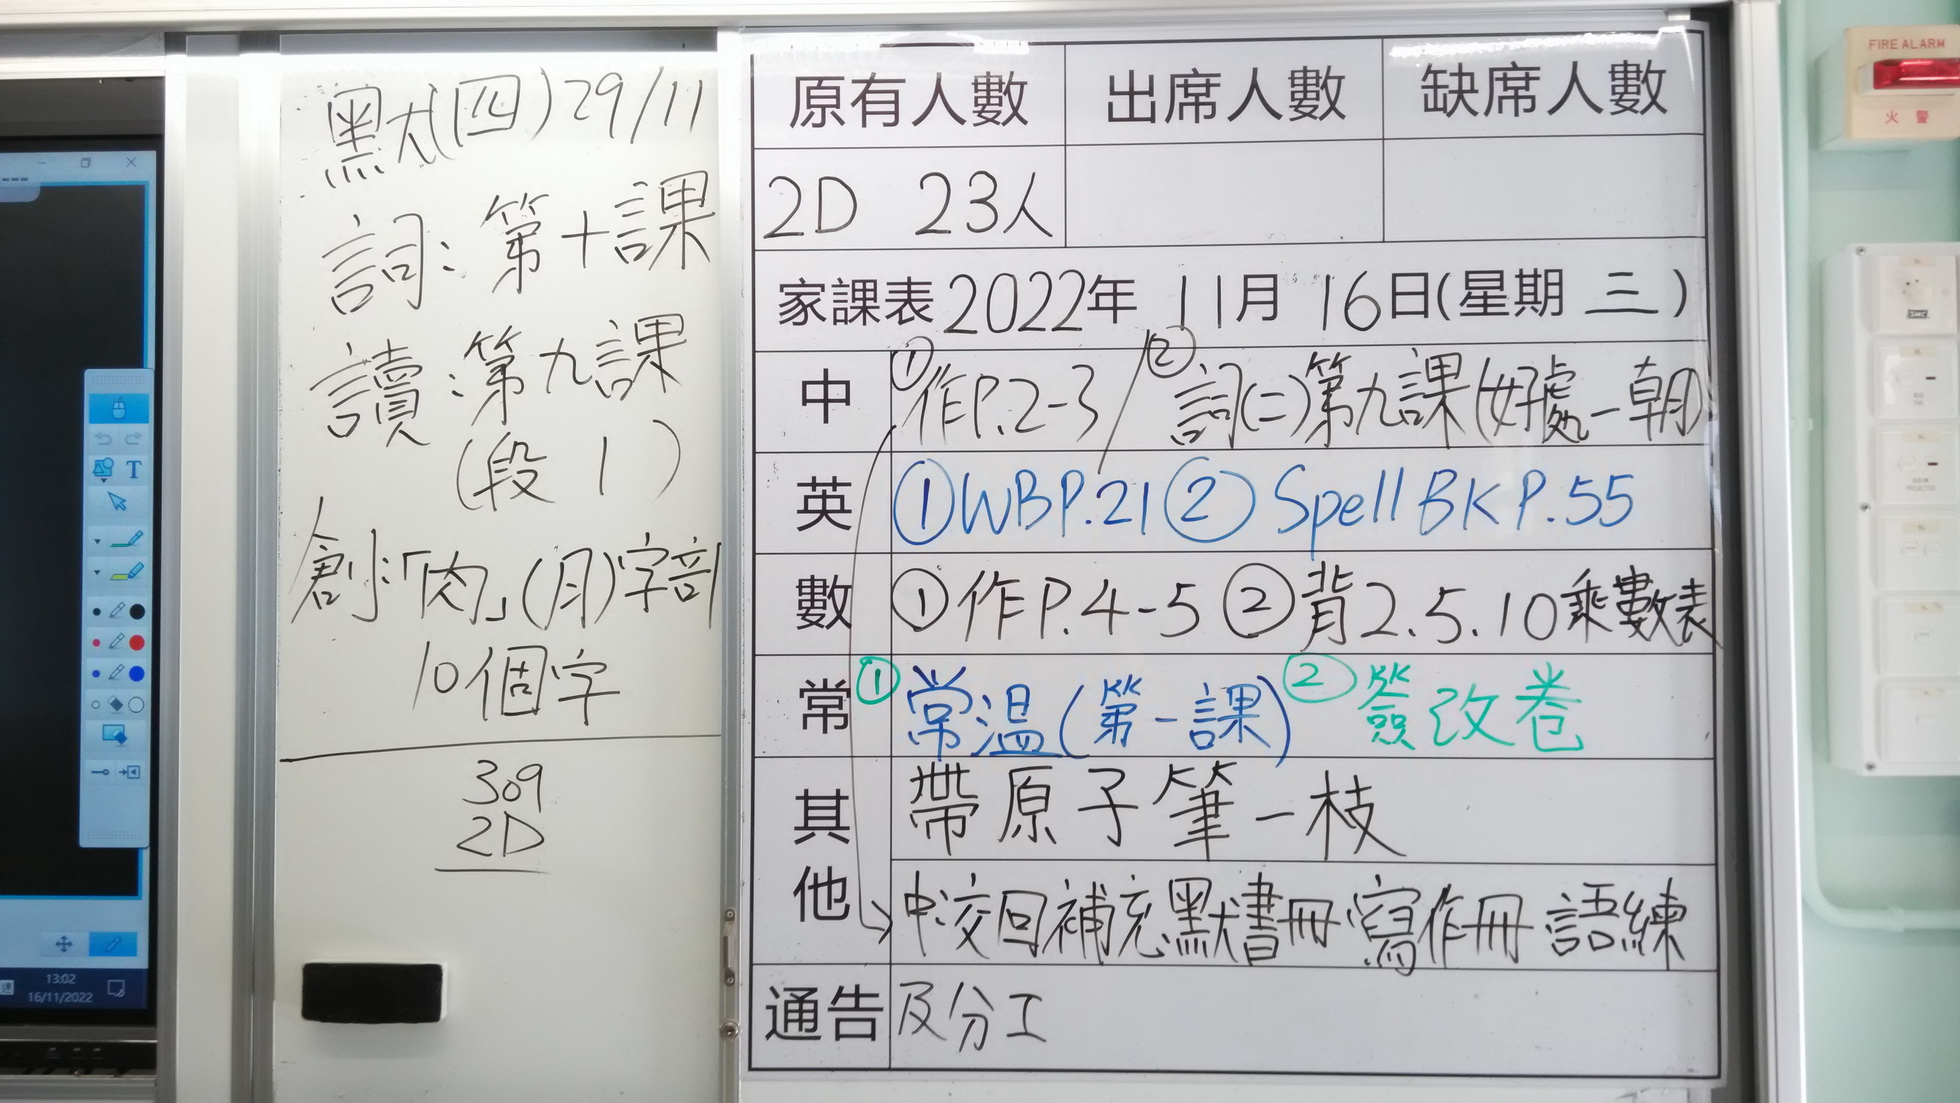 默(四)29/11
詞:第十課
讀:第九課
(段1)
創:「肉」(月)字部
10個字
309
2D
原有人數 出席人數 缺席人數
2D 23人
家課表2022年 11月 16日(星期 三)
中 ①作P.2-3 / ②詞(二)第九課(好處-朝)
英 ①WBP.21 ② Spell BK P.55
數 ①作P.4-5 ②背2.5.10乘數表
常 ①常溫(第一課) ②簽改卷
其他 帶原子筆一枝
中交回補充默書冊寫作冊 語練
通告 及分工
FIRE ALARM
火警
T
13:02
16/11/2022